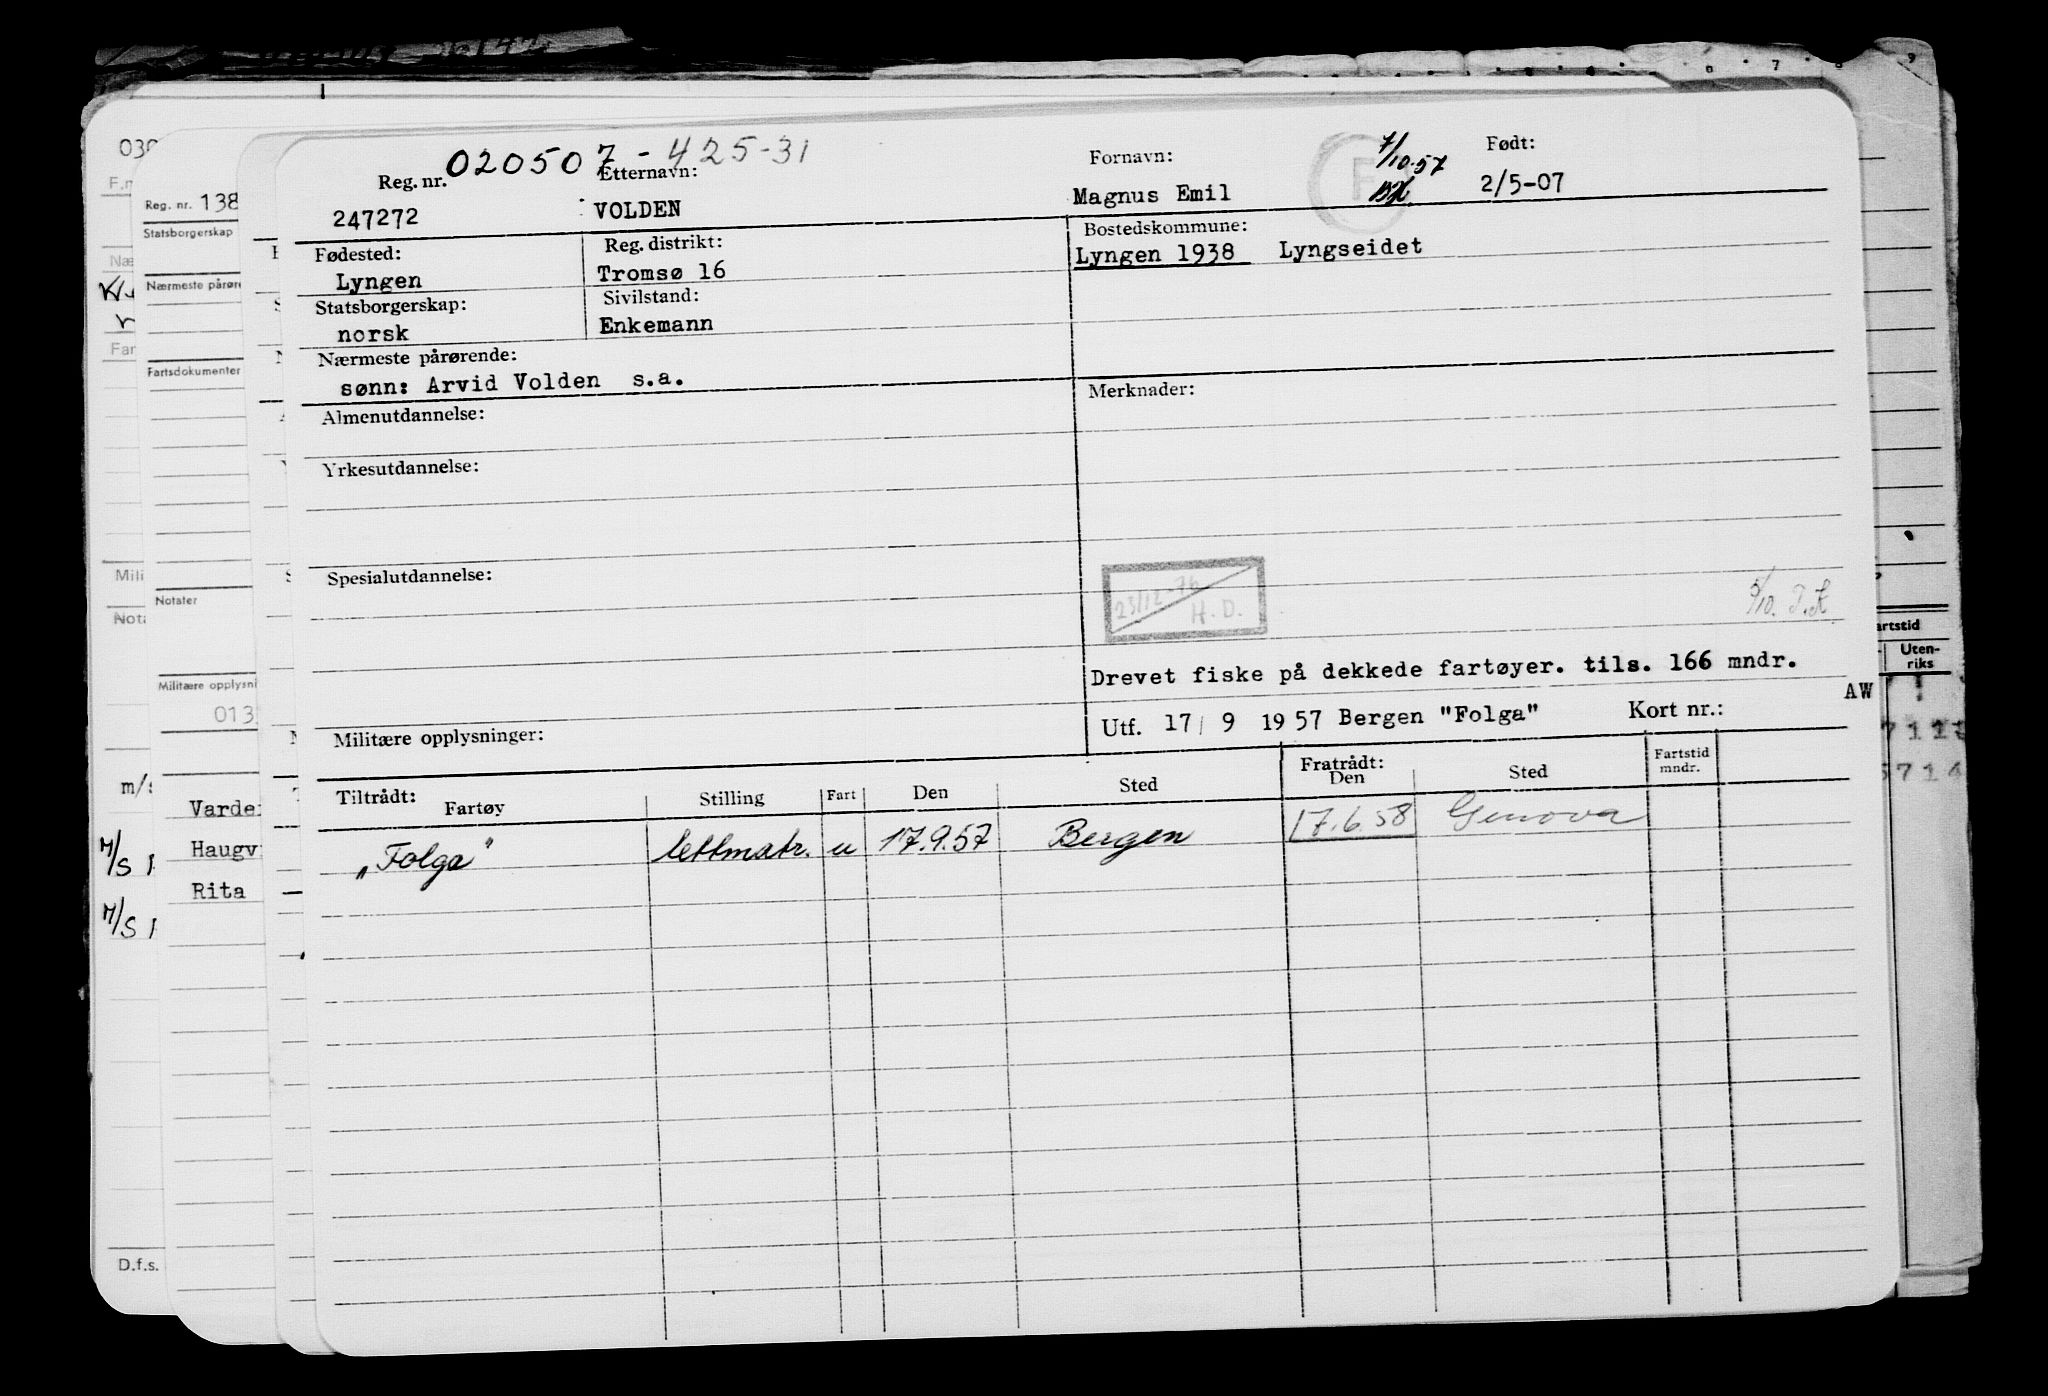 020507 - 425-31
Reg. nr. Etternavn: Fornavn: 7/10.57 Født:
247272 VOLDEN Magnus Emil F 2/5-07
Fødested: Reg. distrikt: Bostedskommune:
Lyngen Tromsø 16 Lyngen 1938 Lyngseidet
Statsborgerskap: Sivilstand:
norsk Enkemann
Nærmeste pårørende:
sønn: Arvid Volden s.a.
Merknader:
Almenutdannelse:
Yrkesutdannelse:
Spesialutdannelse:
23/12-76
H. D.
5/10. T.K
Drevet fiske på dekkede fartøyer. tils. 166 mndr.
AW
Utf. 17/ 9 1957 Bergen "Folga" Kort nr.:
Militære opplysninger:
Tiltrådt: Fratrådt:
Fartøy Stilling Fart Den Sted Den Sted Fartstid mndr.
„Folga" lettmatr. u 17.9.57 Bergen 17.6.58 Genova
030
F.n
Næ
Far
Mili
Nota
m/s
M/S
M/S
D.f.s.
Reg. nr. 138
Statsborgerskap
Nærmeste pårøre
Fartsdokumenter
Notater
Militære opplysni
013
Varde
Haugv
Rita
7 8 9
artstid
Uten-
riks
7113
5714